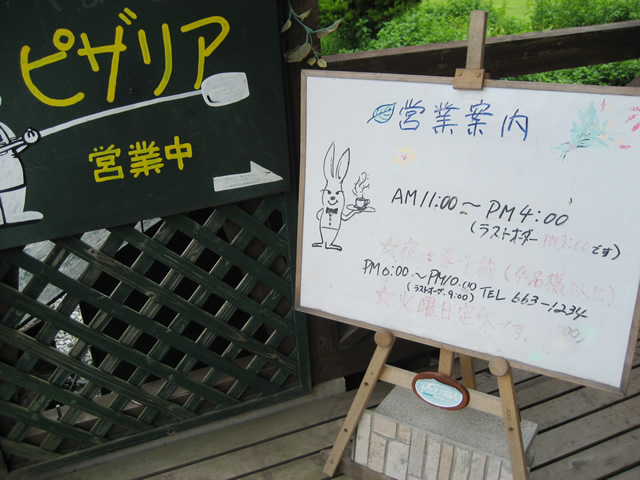 ピザリア
営業中
営業案内
AM 11:00〜PM 4:00
(ラストオーダー PM3:00です)
(4名様以上)
PM 6:00〜PM10:00
(ラストオーダ 9:00) TEL 663-1234
火曜日定休です。